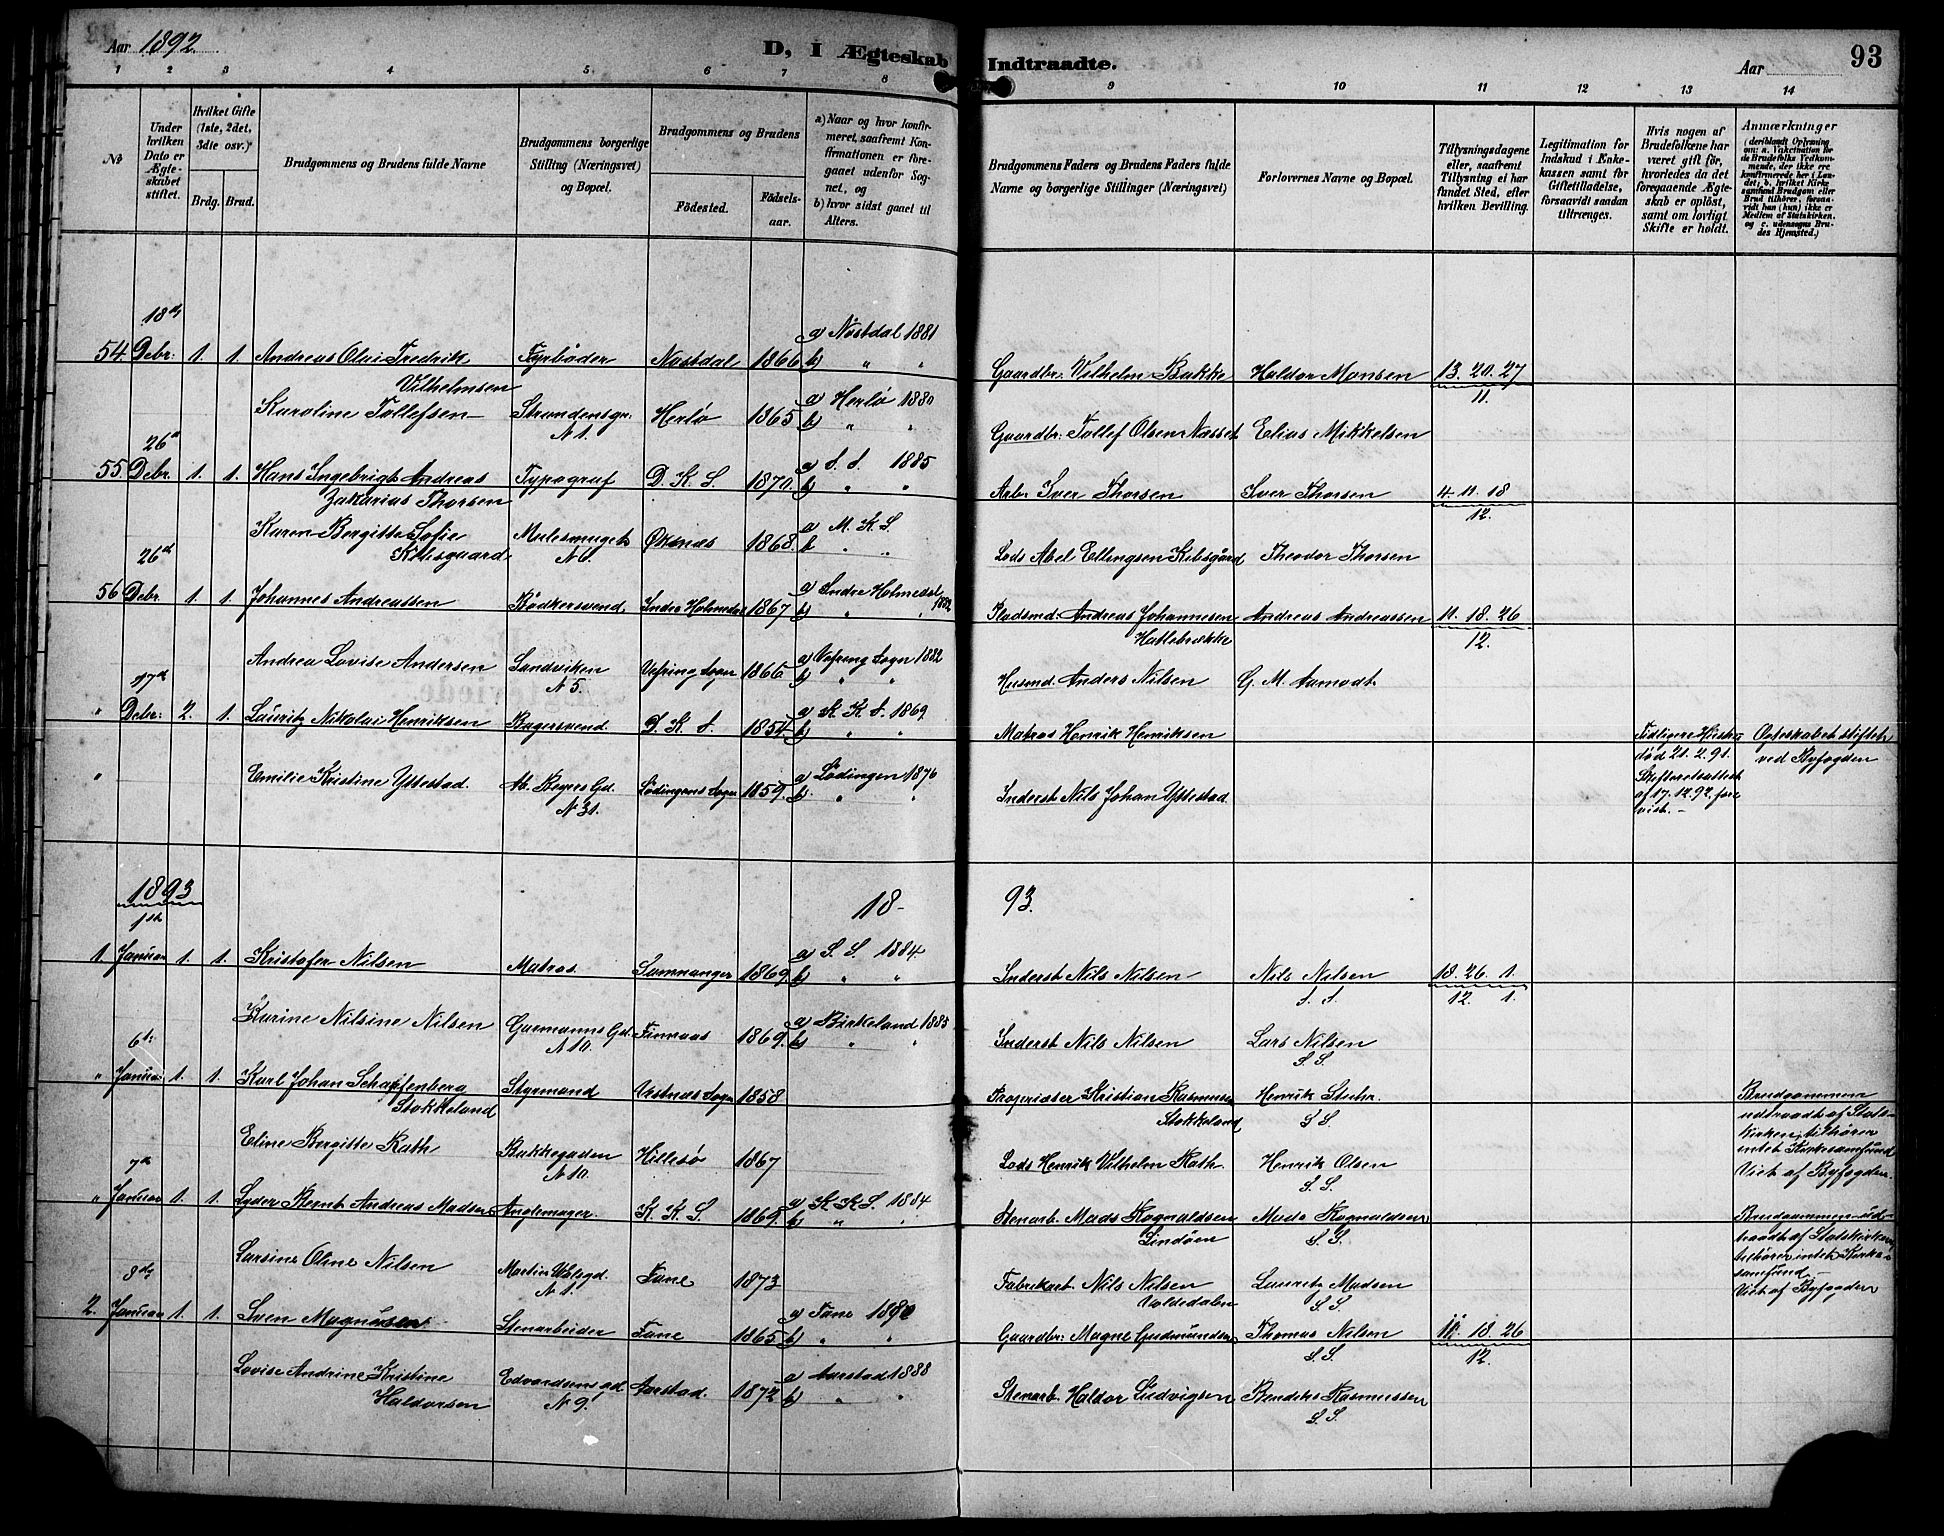 Aar 1892.
D, I Ægteskab Indtraadte.
Aar
93
1 2 3 4 5 6 7 8 9 10 11 12 13 14
No
Under hvilken Dato er Ægteskabet stiftet.
Hvilket Gifte (1ste, 2det, 3die osv.)
Brdg. Brud.
Brudgommens og Brudens fulde Navne
Brudgommens borgerlige Stilling (Næringsvei) og Bopæl.
Brudgommens og Brudens
Födested.
Födsels-aar.
a) Naar og hvor konfirmeret, saafremt Konfirmationen er foregaaet udenfor Sognet, og
b) hvor sidst gaaet til Alters.
Brudgommens Faders og Brudens Faders fulde Navne og borgerlige Stillinger (Næringsvei)
Forlovernes Navne og Bopæl.
Tillysningsdagene eller, saafremt Tillysning ei har fundet Sted, efter hvilken Bevilling.
Legitimation for Indskud i Enkekassen samt for Giftetilladelse, forsaavidt saadan tiltrænges.
Hvis nogen af Brudefolkene har været gift för, hvorledes da det foregaaende Ægteskab er oplöst, samt om lovligt Skifte er holdt.
Anmærkninger
18de
54 Debr. 1. 1. Andreas Olai Fredrik Vilhelmsen Fyrböder Nöstdal 1866 a) Nöstdal 1881 b) " " Gaardbr. Vilhelm Bakke Haldor Monsen 13. 20. 27 11.
Karoline Tollefsen Strandensgr. N 1. Herlö 1865 a) Herlö 1880 b) " " Gaardbr. Tollef Olsen Næsset Elias Mikkelsen
26d
55. Debr. 1. 1. Hans Ingebrigt Andreas Zakarias Thorsen Typograf D. K. S. 1870. a) S. S. 1885 b) " " Arb. Iver Thorsen Iver Thorsen 4. 11. 18 12.
Karen Bergitte Sofie Kilisgaard Mulesmuget N 6. Öksnæs 1868. a) M. K. S. b " " Lods Abel Ellingsen Kilisgård Theodor Thorsen
26d
56 Debr. 1. 1. Johannes Andreassen Bödkersvend Indre Holmedal 1867 a) Indre Holmedal 1882 b) " " Pladsmd. Andreas Johannesen Hatlebrække Andreas Andreassen 11. 18. 26 12.
Andrea Lovise Andersen Sandviken N 5. Vefring Sogn 1866 a) Vefring Sogn 1882 b) " " Husmd. Anders Nilsen G. M. Aamodt.
17d
" Debr. 2. 1. Lauritz Nikolai Henriksen Bagersvend D. K. S. 1854. a) K. K. S. 1869 b) " " Matros Henrik Henriksen Tidligere Hustru död 21. 2. 91. Skifteretsattest af 17. 12. 92 forevist. - Egteskabet stiftet ved Byfogden
" Emilie Kristine Yttestad. Ab. Begers Gd. N 31. Lödingens Sogn 1859. a) Lödingen 1876 b) " " Inderst Nils Johan Yttestad.
1893
18- 93.
1ste
1. Januar 1. 1. Kristofer Nilsen Matros Samnanger 1869. a) S. S. 1884 b) " " Inderst Nils Nilsen Nils Nilsen S. S. 18. 26. 1. 12. 1.
Karine Nilsine Nilsen Garmanns Gd. N 10. Finnaas 1869. a) Birkeland 1885 b) " " Inderst Nils Nilsen Lars Nilsen S. S.
6te
" Januar 1. 1. Karl Johan Schaffenberg Stokkeland Styrmand Vestnæs Sogn 1858 Proprietær Kristian Rasmusen Stokkeland Henrik Stuhr. S S. Brudgommen udtraadt af Statskirken, tilhören intet Kirkesamfund Viet af Byfogden.
Eline Bergitte Rath Bakkegaden N 10. Hillesö 1867 Lods Henrik Vilhelm Rath. Henrik Olsen S. S.
7de
" Januar 1. 1. Lyder Bernt Andreas Madsen Anglemager. K. K. S. 1869. a) K. K. S. 1884 b) " " Stenarb. Mads Ragnaldsen Lindöen Mads Ragnaldsen S S. Brudgommen udtraadt af Statskirken, tilhören intet Kirkesamfund - Viet af Byfogden
Larsine Oline Nilsen Martin Walsgd. N 1. Fane 1873 Fabrikarb. Nils Nilsen Voldedalen Lauritz Madsen S. S.
8de
2. Januar 1. 1. Sven Magnussen Stenarbeider Fane 1865 a) Fane b) " " Gaardbr. Magne Gudmundsen Thomas Nilsen S. S. 11. 18. 26 12.
Lovise Andrine Kristine Haldorsen Edvardsens gd. N 9. Aarstad. 1872 a) Aarstad 1888 b) " " Stenarb. Haldor Ludvigsen Bendiks Rasmussen S S.